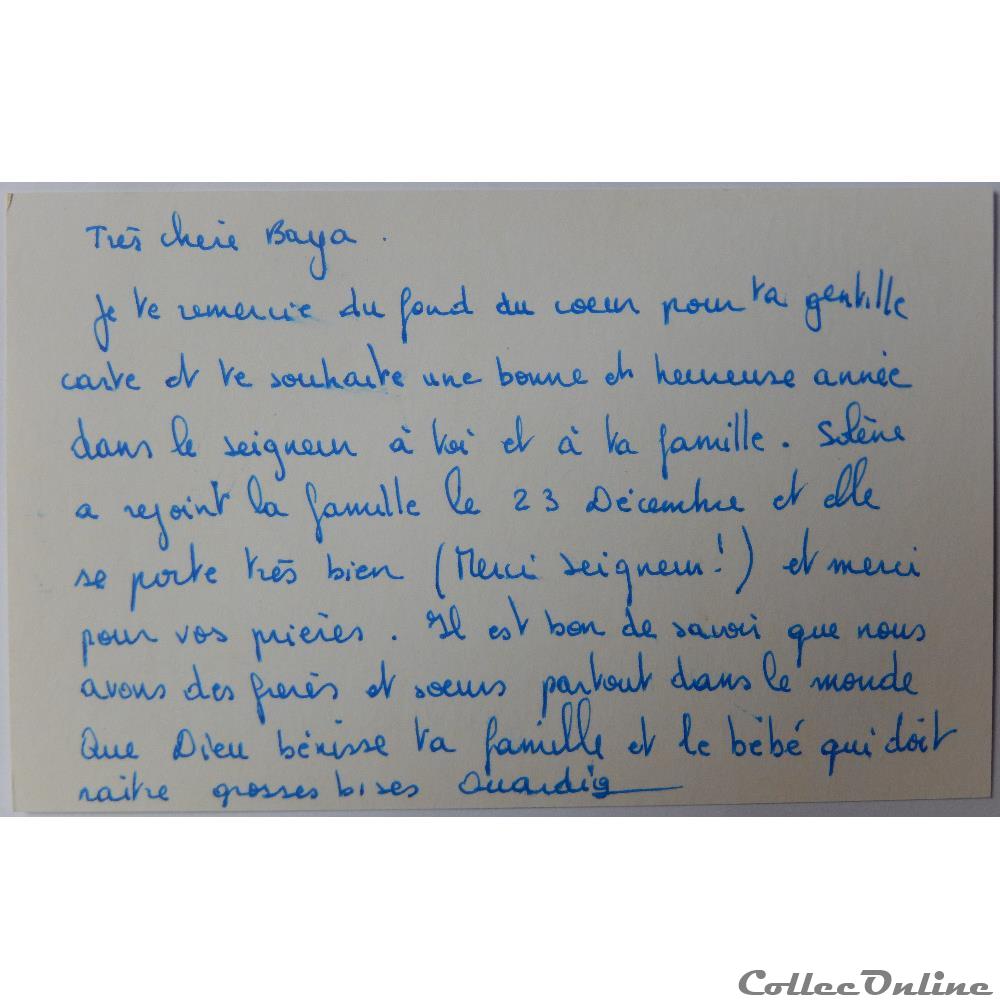 Très chere Baya.
Je te remercie du fond du coeur pour ta gentille
carte et te souhaite une bonne et heureuse année
dans le seigneur à toi et à ta famille. Solène
a rejoint la famille le 23 Décembre et elle
se porte très bien (Merci Seigneur!) et merci
pour vos prières. Il est bon de savoir que nous
avons des frères et soeurs partout dans le monde
Que Dieu bénisse ta famille et le bébé qui doit
naitre grosses bises Ouardia
CollecOnline